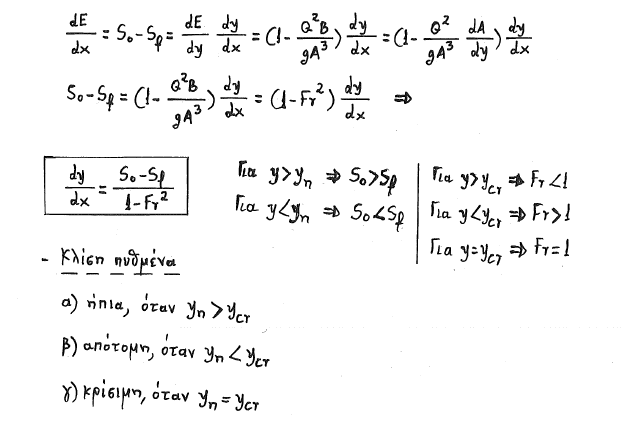 dE/dx = S₀-S_f = dE/dy dy/dx = (1- Q²B/gA³) dy/dx = (1- Q²/gA³ dA/dy) dy/dx
S₀-S_f = (1- Q²B/gA³) dy/dx = (1-Fr²) dy/dx ⇒
dy/dx = S₀-S_f / 1-Fr²
Για y>y_n ⇒ S₀>S_f
Για y<y_n ⇒ S₀<S_f
Για y>y_cr ⇒ Fr<1
Για y<y_cr ⇒ Fr>1
Για y=y_cr ⇒ Fr=1
- Κλίση πυθμένα
α) ήπια, όταν y_n > y_cr
β) απότομη, όταν y_n < y_cr
γ) κρίσιμη, όταν y_n = y_cr